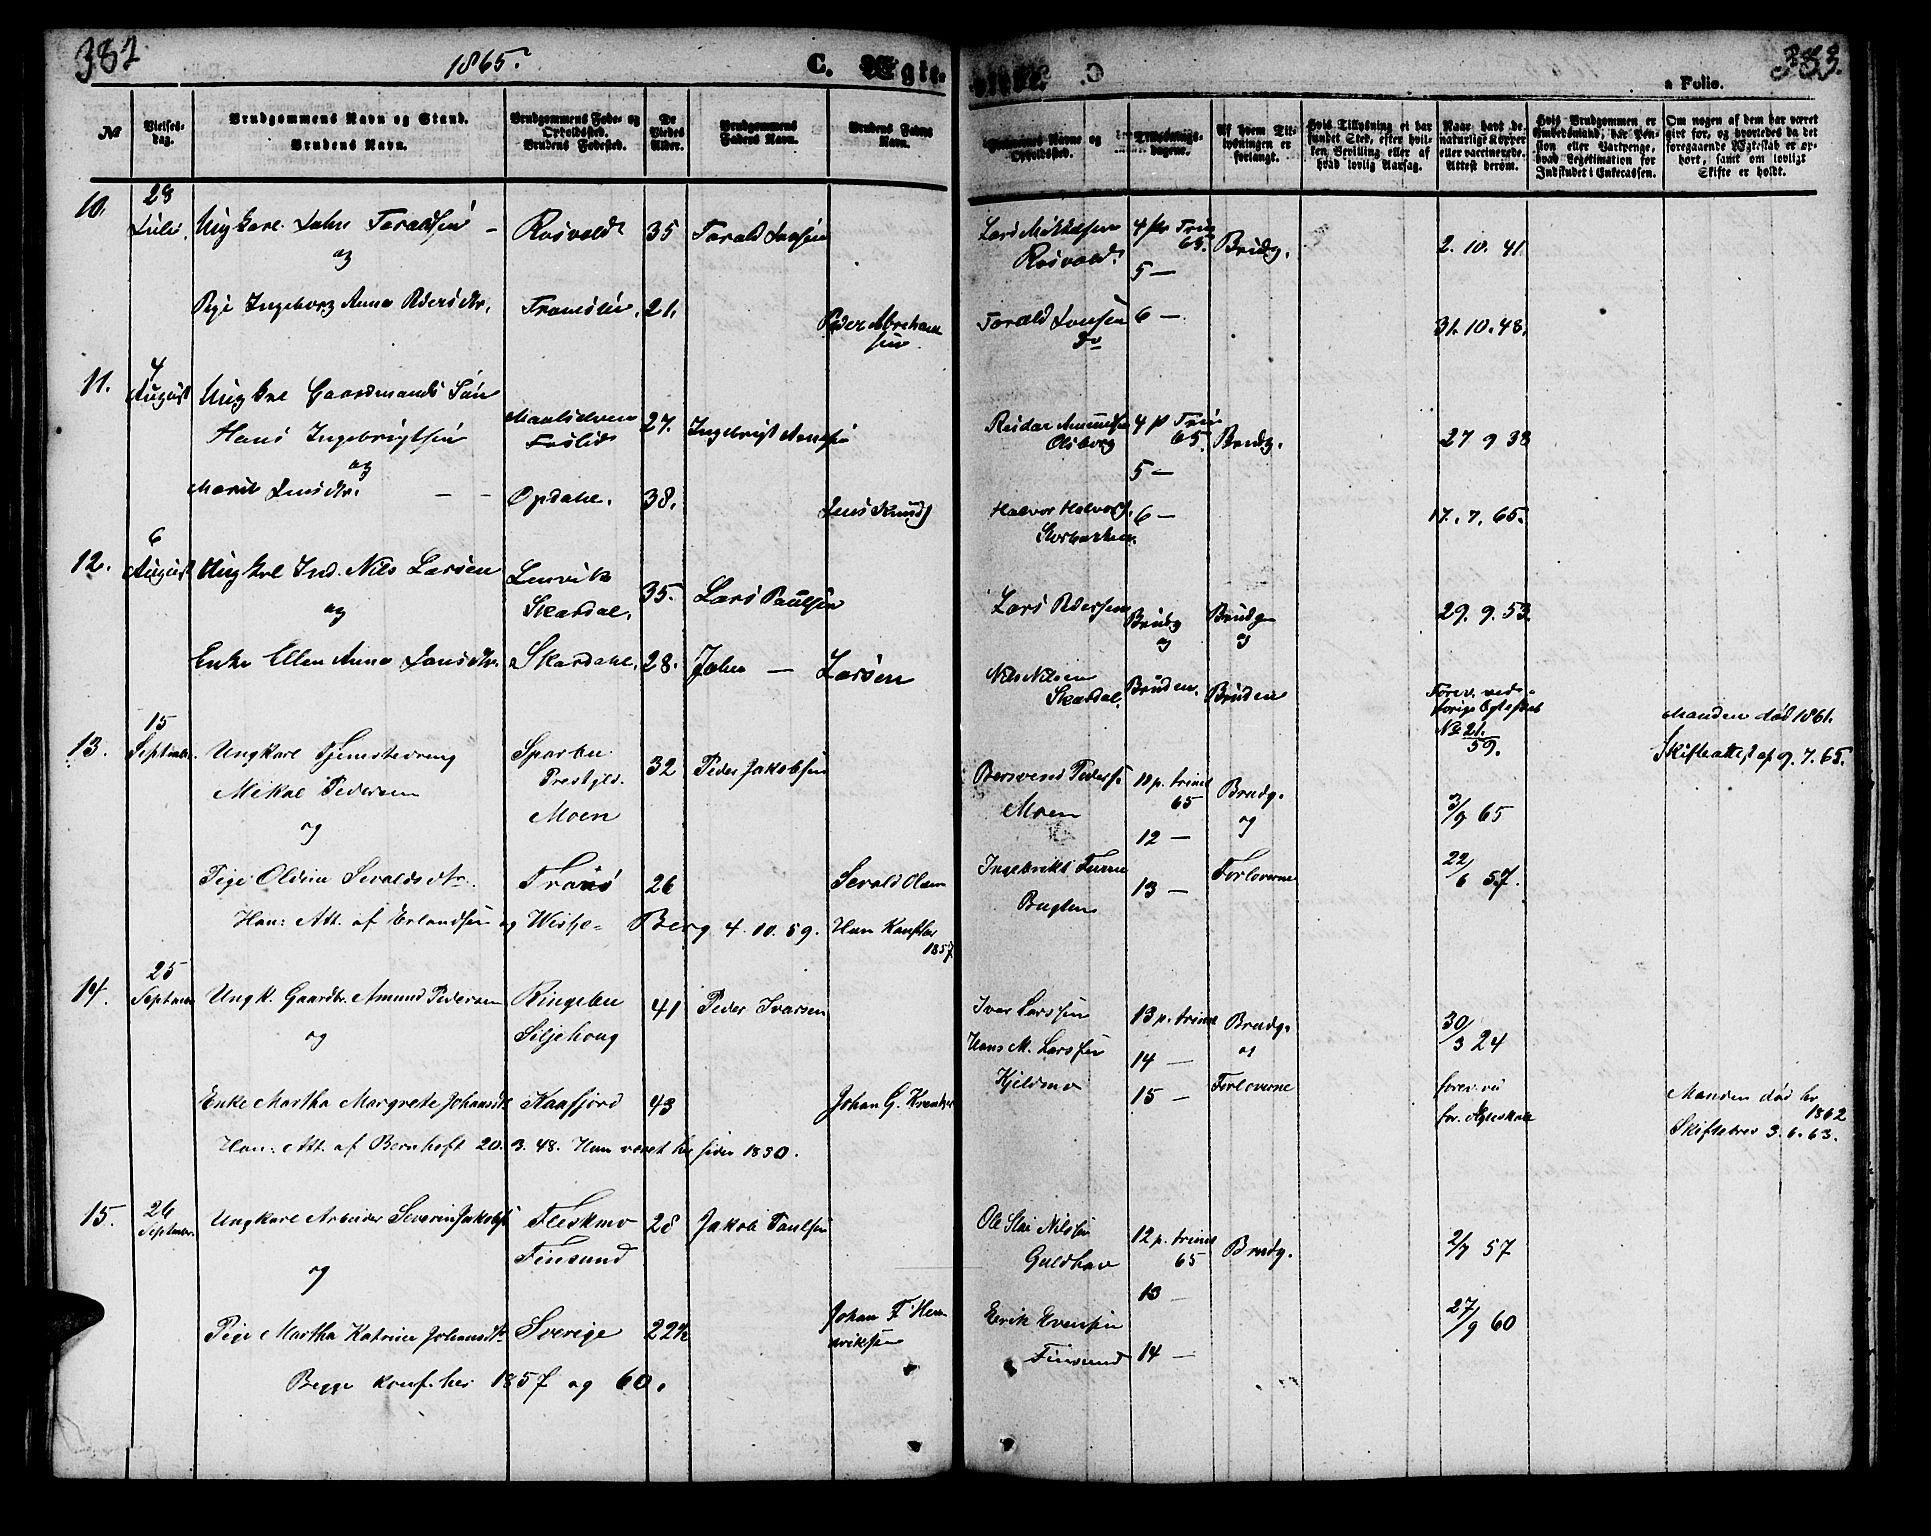 382
1865.
C. Ægte-
333.
a Folio.
No
Vielses-
dag.
Brudgommens Navn og Stand.
Brudens Navn.
Brudgommens Føde- og
Opholdssted.
Brudens Fødested.
De
Viedes
Alder.
Brudgommens
Faders Navn.
Brudens Faders
Navn.
Navne og
Opholdssted.
Tillysnings-
dagene.
Af hvem Til-
lysningen er
forlangt.
Hvis Tillysning ei har
fundet Sted, efter hvil-
ken Bevilling eller af
hvad lovlig Aarsag.
Naar havt de
naturlige Kopper
eller vaccinerede.
Attest derom.
Hvis Brudgommen er
Embedsmand, har Pen-
sion eller Vartpenge,
hvad Legitimation for
Indskudet i Enkecassen.
Om nogen af dem har været
gift før, og hvorledes da det
foregaaende Ægteskab er op-
hørt, samt om lovligt
Skifte er holdt.
10.
28
Juli.
Ungkarl John Taraldsen
og
Rosvold
35
Tarald
Lars Mikkelsen
Rosvold.
4 p. Trin
65.
5 —
Brudg.
2. 10. 41
Pige Ingeborg Anna Peders dtr.
21.
Peder Abraham
sen
Tarald
Do
6 —
31. 10. 48.
11.
4
August
Ungkrl Gaardmands Søn
Hans Ingebrigtsen
og
Maalselven
Foslid
27.
Ingebrigt
Reidar
Olsborg
4 p Trin
65.
5 —
Brudg.
27 9 38
Marit Jensdtr.
Opdahl.
38.
Jens Knuds
Halvor Halvors.
Storbakken.
6 —
17. 7. 65.
12.
6
August
Ungkrl Ind. Nils Larsen
og
Lenvik
Skardal.
35.
Lars Paulsen
Lars Pedersen
Brudg
og
Brudg
og
29. 9. 53.
Enke Ellen Anna Jonsdtr.
Skardahl.
28.
John — Larsen
Nils Nilsen
Skardal.
Bruden.
Bruden
Forev. ved
forige Egteskab
No 21.
59.
Manden død 1861.
Skifteattest af 9. 7. 65.
13.
15
September.
Ungkarl Tjenestedreng
Mikal Pedersen
og
Sparbu
Prestgld.
Moen
32
Peder Jakobsen
Bersvend Peders.
Moen
10 p. trinit
65
12 —
Brudg.
og
3/9 65
Pige Oldine Sevaldsdtr.
Tranø
26
Sevald Olsen
Ingebrikt
13 —
Forloverne
22/6 57.
Han: Att. af Erlandsen og Westye- Berg 4. 10. 59. Hun Konf her
1857.
14.
25
Septmbr
Ungk. Gaardbr. Amund Pedersen
og
Ringebu
Siljehoug
41
Peder Ivarsen
Ivar Larssen
Hans M. Larssen
Kjeldmo
13 p. trinit
14 —
15 —
Brudg.
og
Forloverne
30/3 24
Enke Martha Margrete Johansdtr
Kaafjord
43
Johan G.
forev. vd
for. Ægteskab
Manden død her
1862
Skiftebrev 3. 6. 63.
Han: Att. af Bernhoft 20. 3. 48. Hun været her siden 1830.
15.
26
Septmbr.
Ungkarl Arbeider Severin Jakobs.
og
Fleskmo
Finsund
28
Jakob Paulsen
Ole Nilssen
Guldhav
12 p. trinit
65
13
Brudg.
2/9 57
Pige Martha Katrine Johansdtr
Sverige
22½
Johan F Hen-
driksen
Erik Evensen
Finsund
14 —
27/9 60
Begge konf. her 1857 og 60.